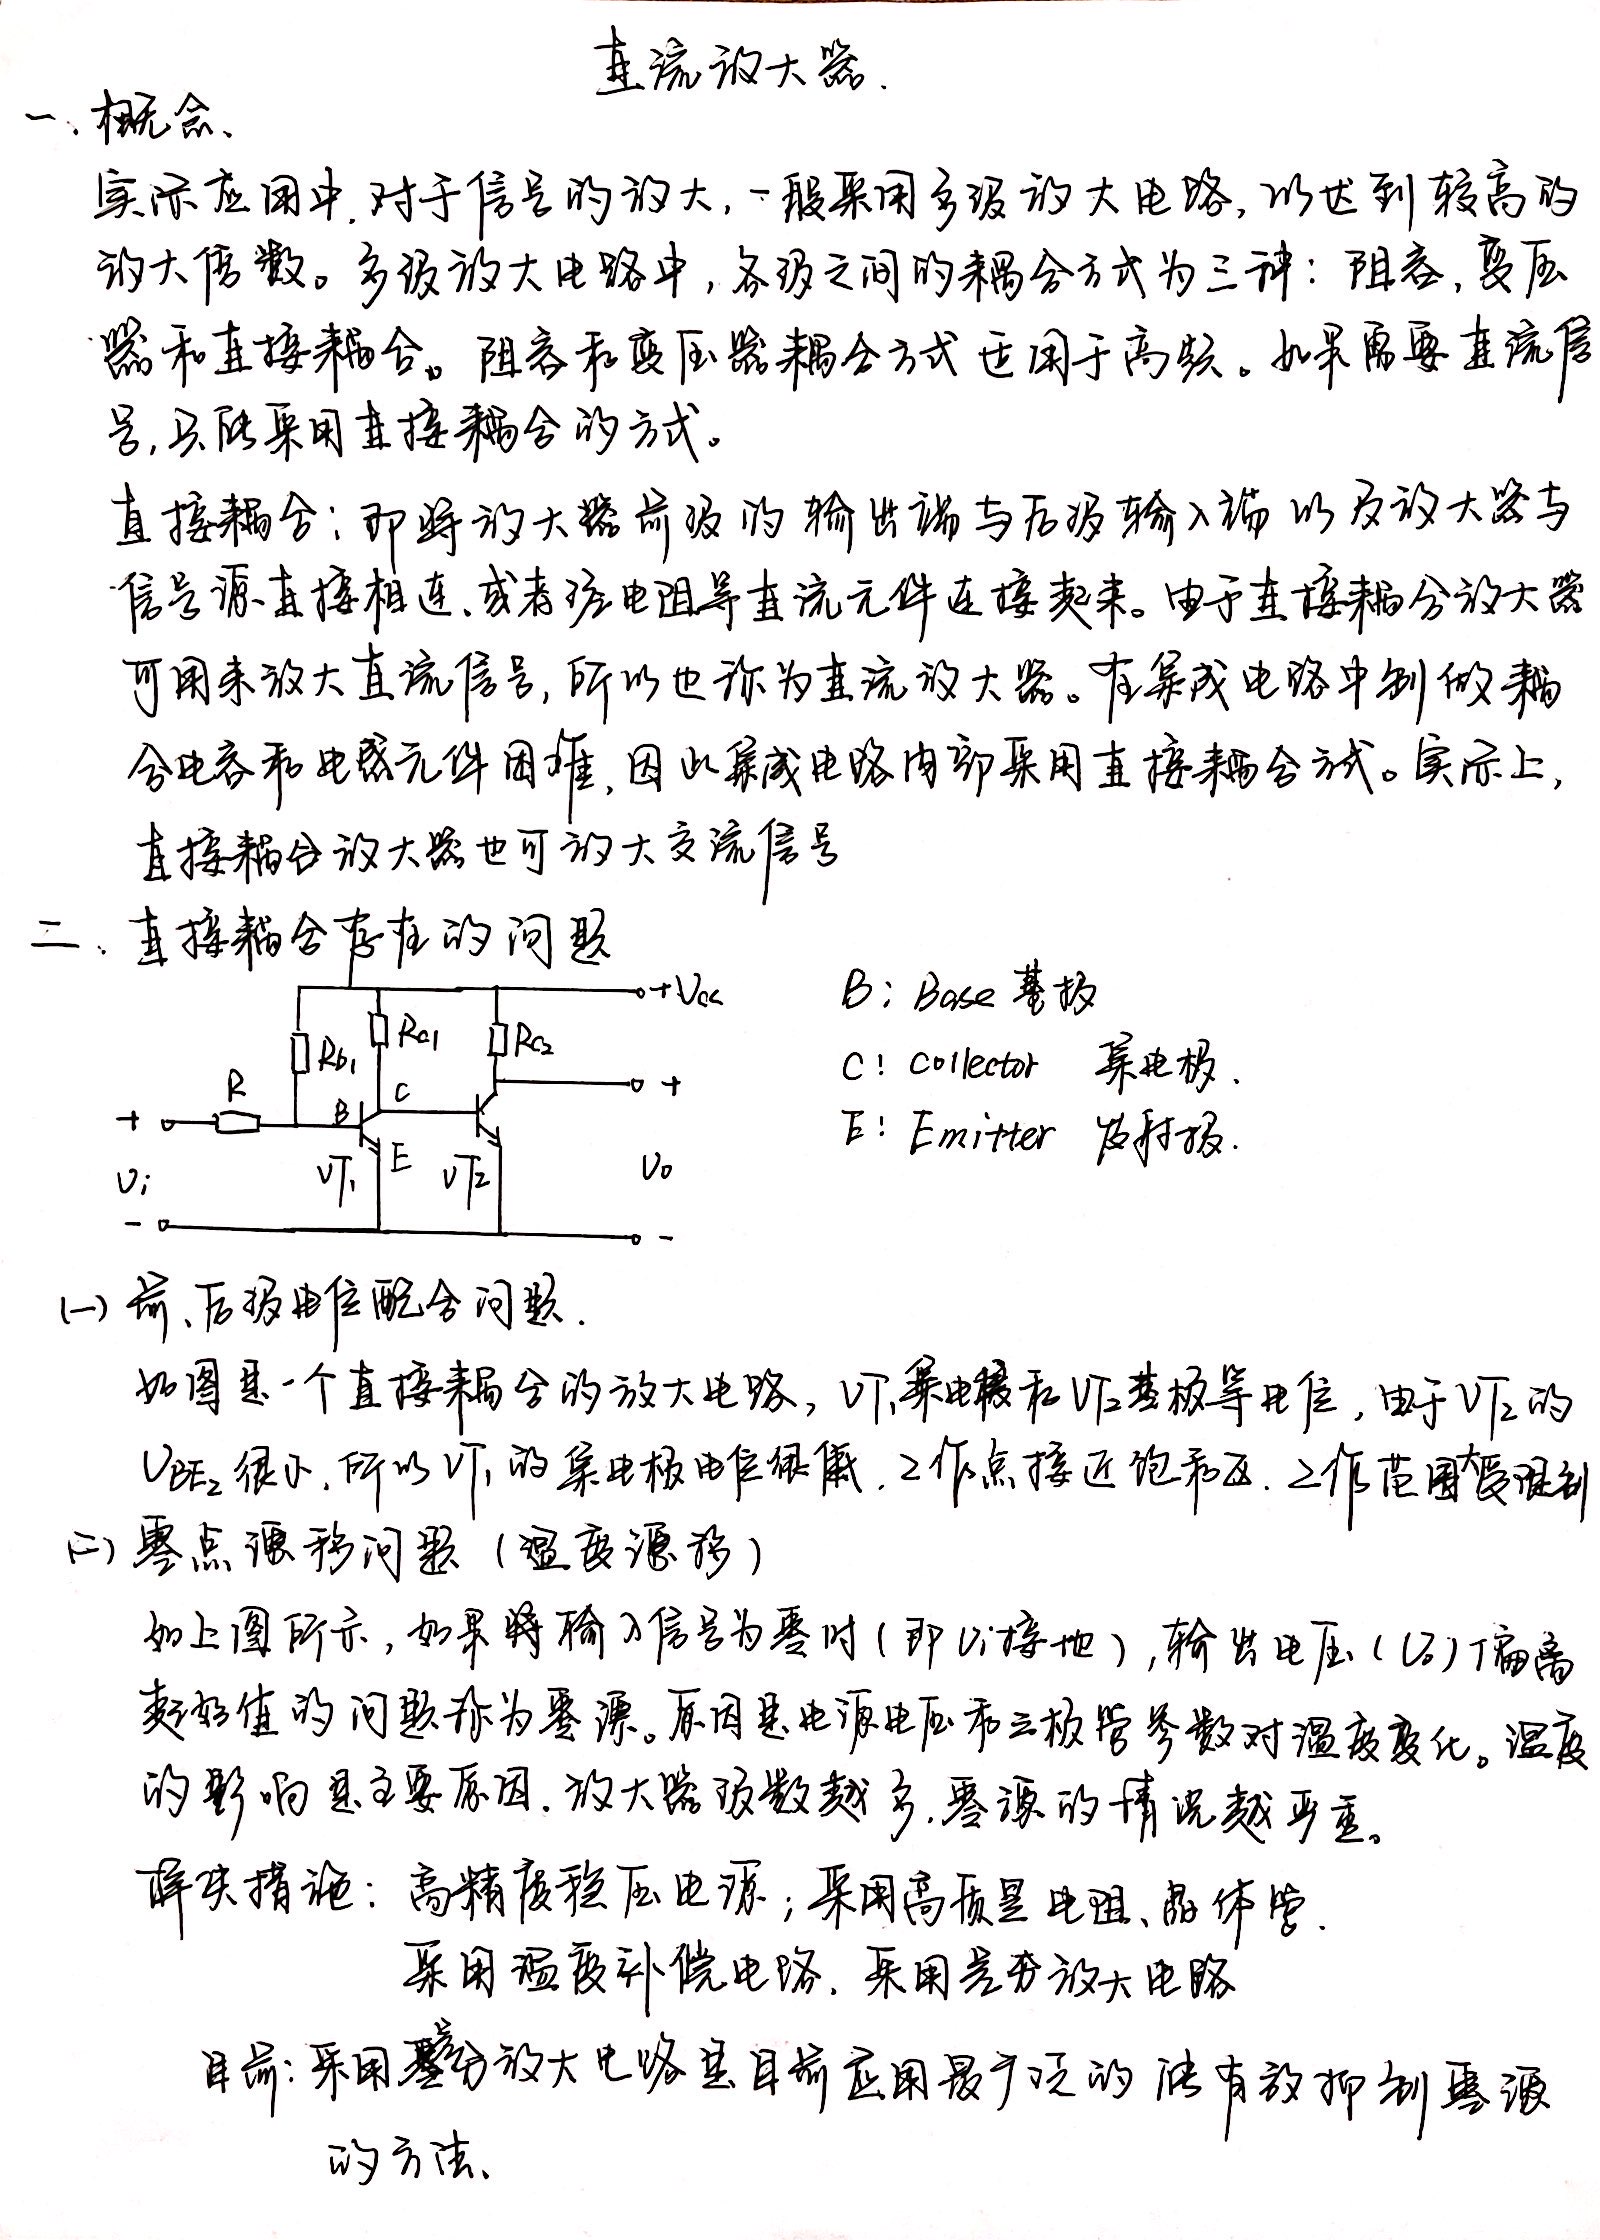 直流放大器.
一、概念、
实际应用中,对于信号的放大,一般采用多级放大电路,以达到较高的
放大倍数。多级放大电路中,各级之间的耦合方式为三种:阻容,变压
器和直接耦合。阻容和变压器耦合方式适用于高频。如果需要直流信
号,只能采用直接耦合的方式。
直接耦合:即将放大器前级的输出端与后级输入端以及放大器与
信号源直接相连、或者经电阻等直流元件连接起来。由于直接耦合放大器
可用来放大直流信号,所以也称为直流放大器。在集成电路中制做耦
合电容和电感元件困难,因此集成电路内部采用直接耦合方式。实际上,
直接耦合放大器也可放大交流信号
二、直接耦合存在的问题
+Vcc
B: Base 基极
Rb1 Rc1 Rc2
C: Collector 集电极.
R B C +
+
E: Emitter 发射极.
Ui VT1 E VT2 Uo
- -
(一) 前、后级电位配合问题.
如图是一个直接耦合的放大电路,VT1集电极和VT2基极等电位,由于VT2的
UBE2很小,所以VT1的集电极电位很低.工作点接近饱和区.工作范围大受限制
(二) 零点漂移问题(温度漂移)
如上图所示,如果将输入信号为零时(即Ui接地),输出电压(Uo)偏离
起始值的问题称为零漂。原因是电源电压和三极管参数对温度变化。温度
的影响是主要原因.放大器级数越多.零漂的情况越严重。
解决措施:高精度稳压电源;采用高质量电阻、晶体管.
采用温度补偿电路.采用差分放大电路
目前:采用差分放大电路是目前应用最广泛的能有效抑制零漂
的方法、